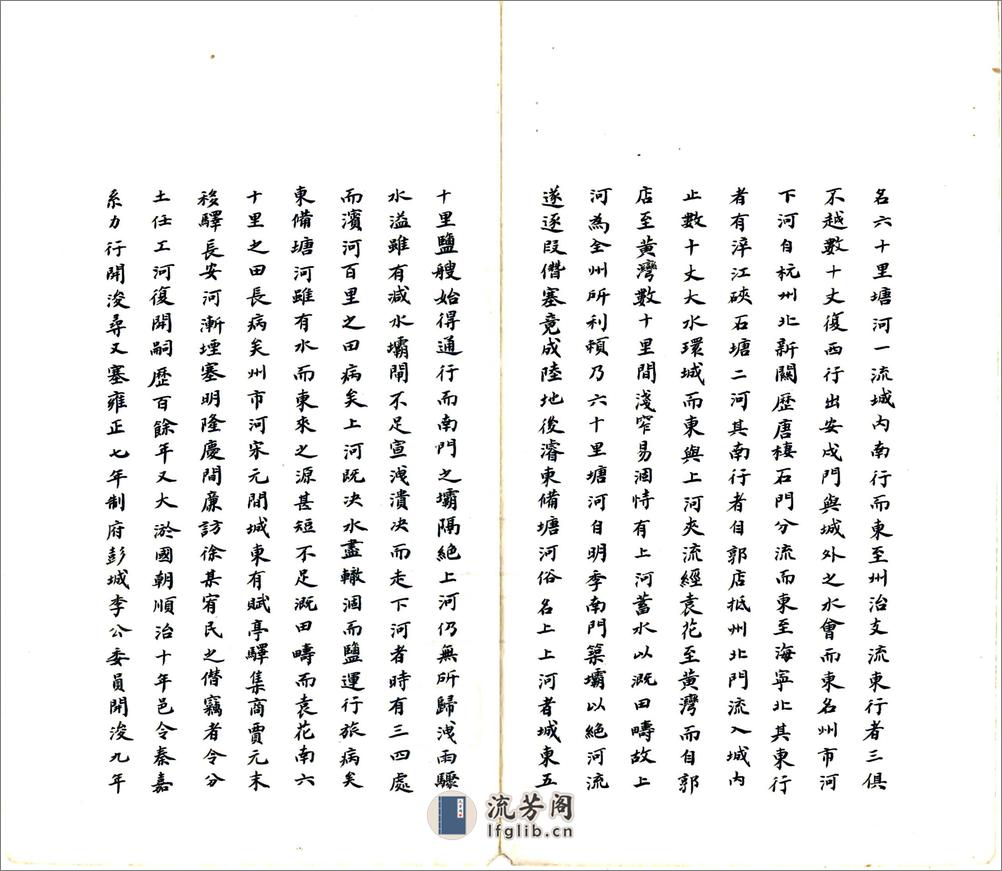 名六十里塘河一流城内南行而東至州治支流東行者三俱
不越數十丈復西行出安戍門與城外之水會而東名州市河
下河自杭州北新關歷唐棲石門分流而東至海寧北其東行
者有淳江硤石塘二河其南行者自郭店抵州北門流入城内
止數十丈大水環城而東與上河夾流經袁花至黃灣而自郭
店至黃灣數十里間淺窄易涸恃有上河蓄水以溉田疇故上
河為全州所利賴乃六十里塘河自明季南門築壩以絶河流
遂逐段僭塞竟成陸地後濬東備塘河俗名上上河者城東五
十里鹽艘始得通行而南門之壩隔絶上河仍無所歸洩雨驟
水溢雖有減水壩閘不足宣洩潰决而走下河者時有三四處
而濱河百里之田病矣上河既决水盡輙涸而鹽運行旅病矣
東備塘河雖有水而東來之源甚短不足溉田疇而袁花南六
十里之田長病矣州市河宋元間城東有賦亭驛集商賈元末
移驛長安河漸堙塞明隆慶間廉訪徐某宥民之僭竊者令分
土任工河復開嗣歷百餘年又大淤國朝順治十年邑令秦嘉
系力行開浚尋又塞雍正七年制府彭城李公委員開浚九年
流芳阁
lfglib.cn